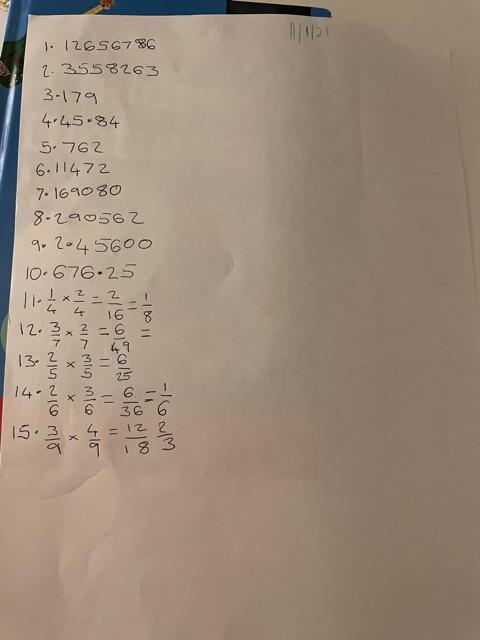 11/1/21
1. 12656786
2. 3558263
3.179
4.45.84
5. 762
6.11472
7.169080
8.290562
9. 2.45600
10.676.25
11. 1/4 × 2/4 = 2/16 = 1/8
12. 3/7 × 2/7 = 6/49 =
13. 2/5 × 3/5 = 6/25
14. 2/6 × 3/6 = 6/36 = 1/6
15. 3/9 × 4/9 = 12/18 2/3